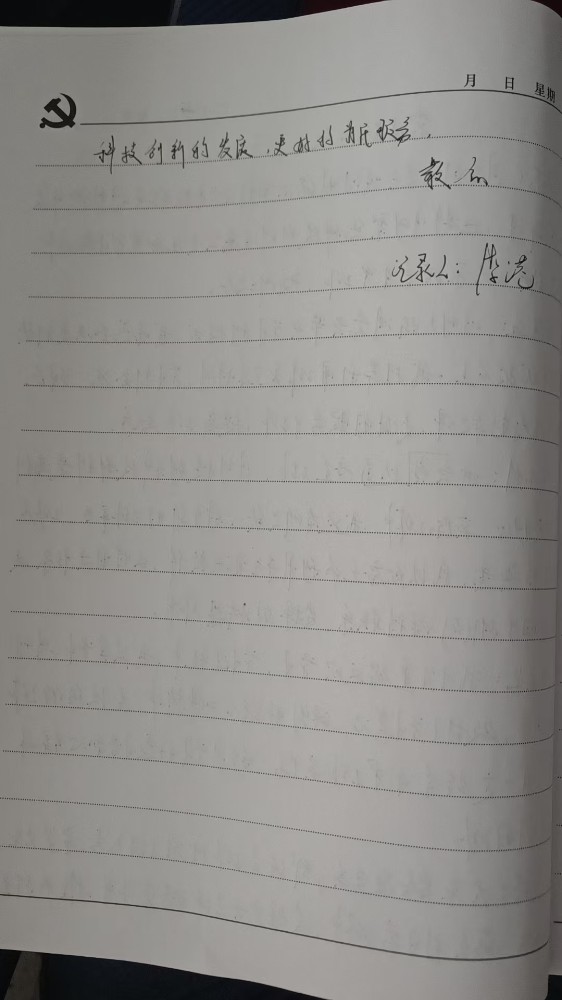 月 日 星期
科技创新的发展，更好的为民服务。
散会
记录人：李港